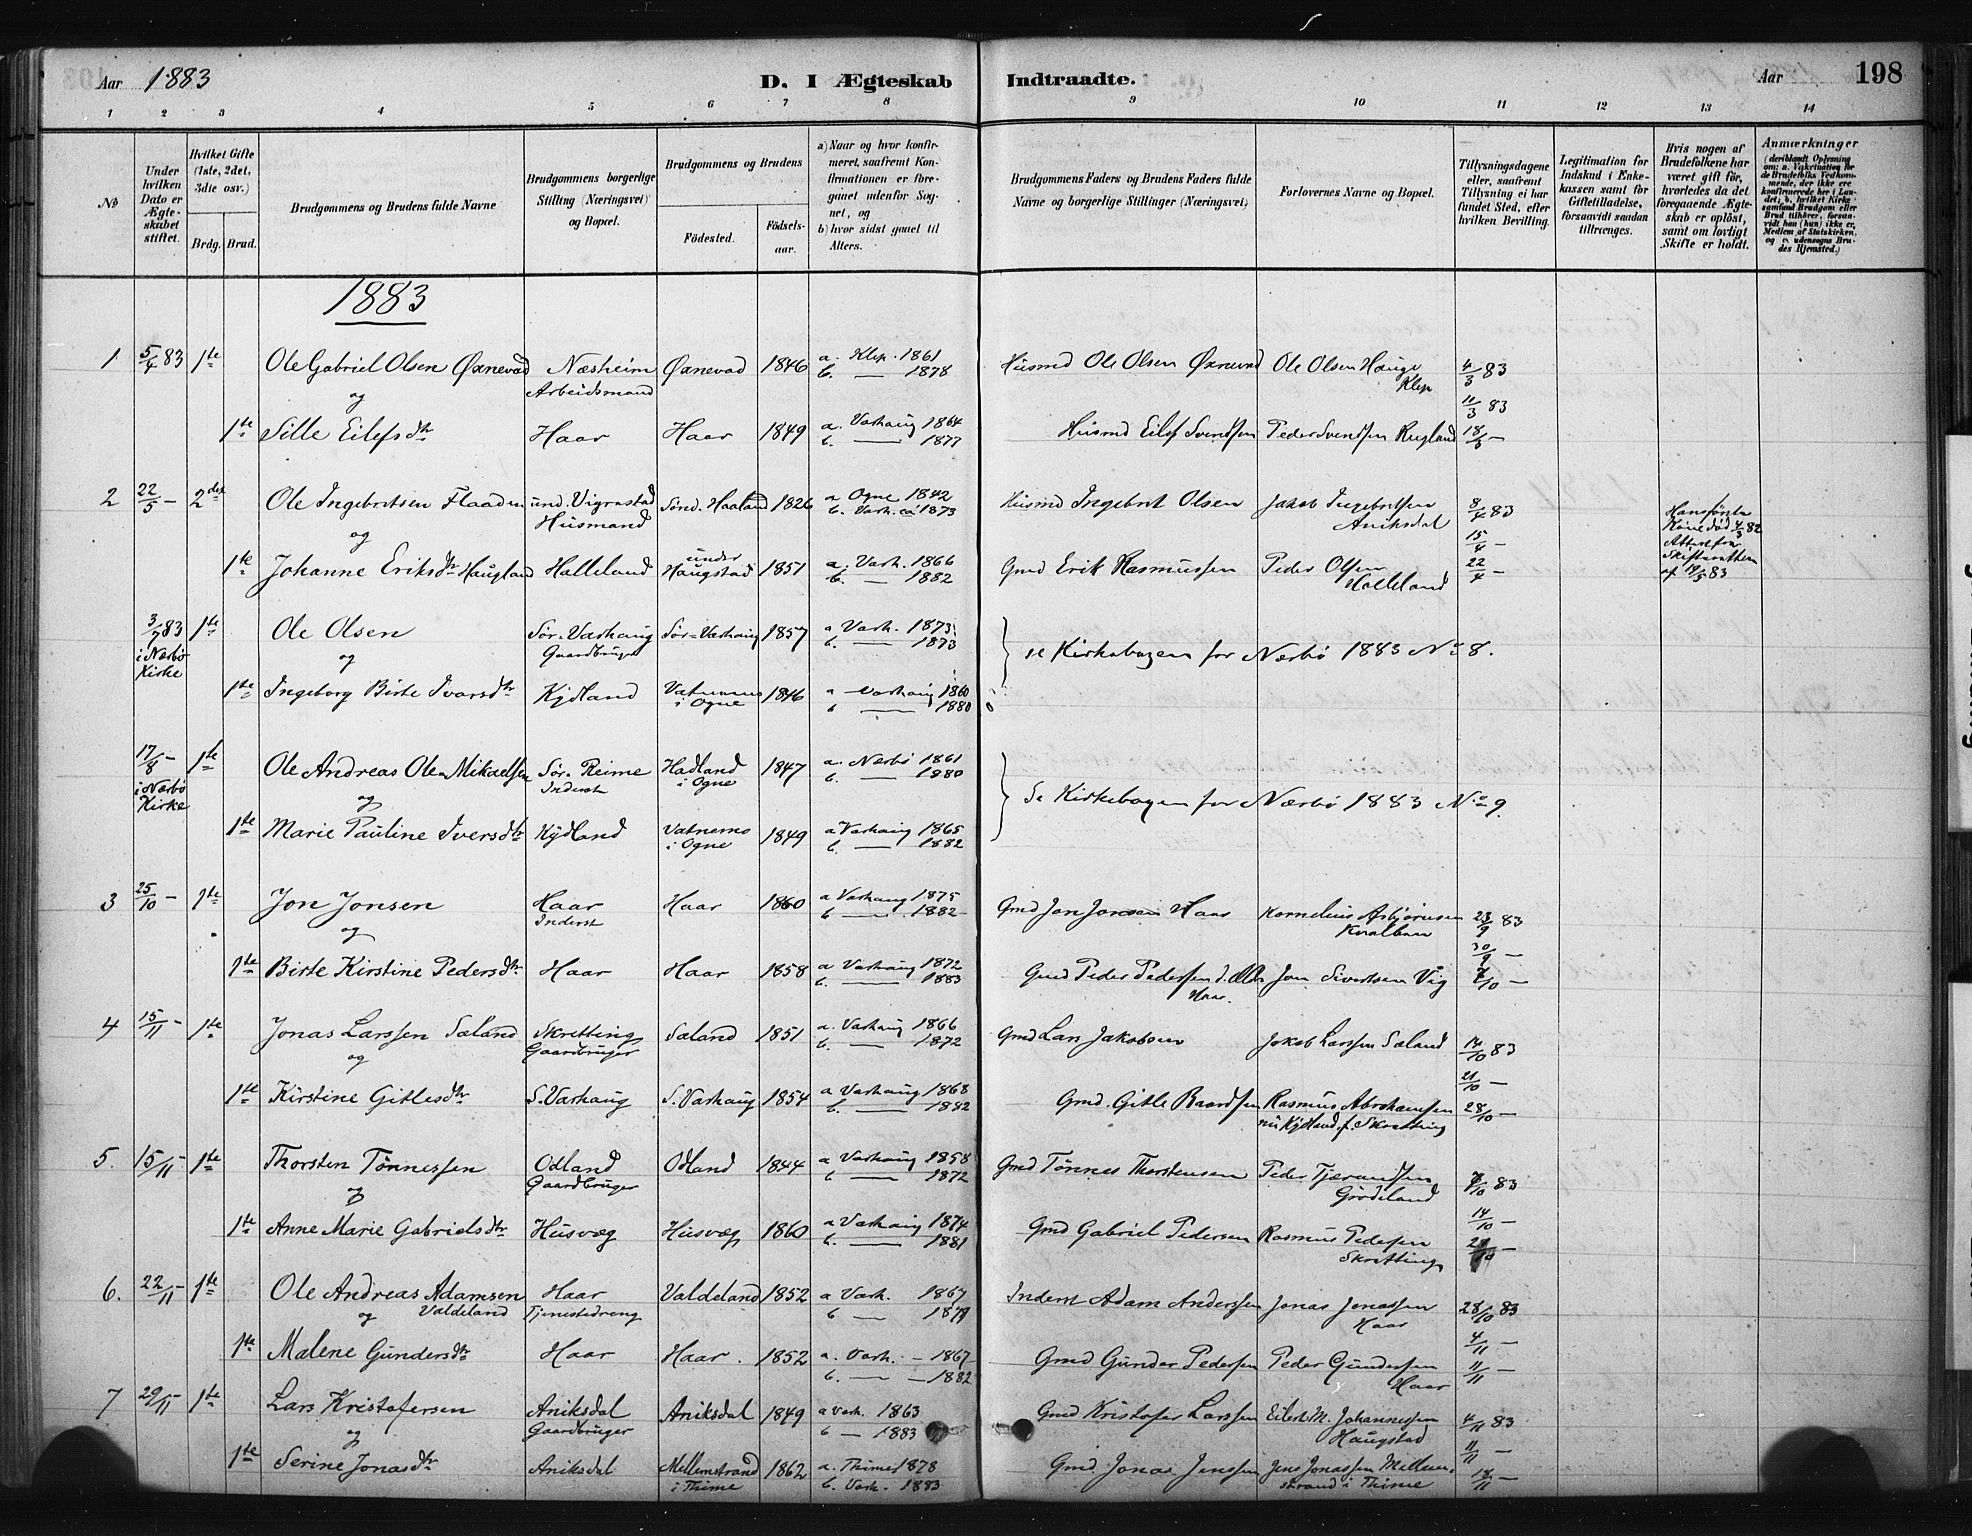 Aar 1883 D. I Ægteskab Indtraadte. Aar 198
1 2 3 4 5 6 7 8 9 10 11 12 13 14
No
Under hvilken Dato er Ægteskabet stiftet.
Hvilket Gifte (1ste, 2det, 3die osv.)
Brdg. Brud.
Brudgommens og Brudens fulde Navne
Brudgommens borgerlige Stilling (Næringsvei) og Bopæl.
Brudgommens og Brudens
Fødested. Fødselsaar.
a) Naar og hvor konfirmeret, saafremt Konfirmationen er foregaaet udenfor Sognet, og
b) hvor sidst gaaet til Alters.
Brudgommens Faders og Brudens Faders fulde Navne og borgerlige Stillinger (Næringsvei)
Forlovernes Navne og Bopæl.
Tillysningsdagene eller, saafremt Tillysning ei har fundet Sted, efter hvilken Bevilling.
Legitimation for Indskud i Enkekassen samt for Giftetilladelse, forsaavidt saadan tiltrænges.
Hvis nogen af Brudefolkene har været gift før, hvorledes da det foregaaende Ægteskab er opløst, samt om lovligt Skifte er holdt.
Anmærkninger (deriblandt Oplysning om: a. Vakcination for de Brudefolks Vedkommende, der ikke ere konfirmerede her i Landet; b. hvilket Kirkesamfund Brudgom eller Brud tilhører, forsaavidt han (hun) ikke er Medlem af Statskirken, og c. udensogns Brudes Hjemsted.)
1883
1 5/4 83 1te Ole Gabriel Olsen Øxnevad Næsheim Øxnevad 1846 a. Klep 1861 Husmd Ole Olsen Øxnevad Ole Olsen Hauge 4/3 83
og Arbeidsmand b. — 1878 Klep 11/3 83
1te Sille Eilefsdtr Haar Haar 1849 a. Varhaug 1864 Husmd Eilef Svendsen Peder Svendsen Rugland 18/3 —
b. — 1877
2 22/5 — 2det Ole Ingebretsen Flaaden und. Vigrestad Sønd. Haaland 1826 a Ogne 1842 Husmd Ingebret Olsen Jakob Ingebretsen 8/4 83 Hans første
og Husmand b. Varh. ca 1873 Aniksdal 15/4 — Kone død 4/3 82
Attest fra
1te Johanne Eriksdtr Haugland Halleland under Haugstad 1851 a. Varh. 1866 Gmd Erik Rasmussen Peder Olsen 22/4 — Skifteretten
b. — 1882 Halleland af 19/5 83
3/7 83 1te Ole Olsen Sør-Varhaug Sør-Varhaug 1857 a Varh. 1873
i Nærbø Kirke og Gaardbruger b. — 1873 se Kirkebogen for Nærbø 1883 No 8.
1te Ingeborg Birte Ivarsdtr Kydland Vatnemo i Ogne 1846 a Varhaug 1860
b — 1880
17/8 — 1te Ole Andreas Ole-Mikaelsen Sør-Reime Hadland i Ogne 1847 a. Nærbø 1861
i Nærbø Kirke og Inderst b. — 1880 Se Kirkebogen for Nærbø 1883 No 9.
1te Marie Pauline Iversdtr Kydland Vatnemo i Ogne 1849 a Varhaug 1865
b. — 1882
3 25/10 — 1te Jon Jonsen Haar Haar 1860 a Varhaug 1875 Gmd Jon Jonsen Haar Kornelius Asbjørnsen 23/9 83
og Inderst b — 1882 Kvalbein 30/9 —
1te Birte Kirstine Pedersdtr Haar Haar 1858 a Varhaug 1872 Gmd Peder Pedersen d. Æld. Jon Sivertsen Vig 7/10 —
b. — 1883 Haar.
4 15/11 — 1te Jonas Larssen Sæland Skretting Sæland 1851 a. Varhaug 1866 Gmd Lars Jakobsen Jakob Larssen Sæland 14/10 83
og Gaardbruger b. — 1872 21/10 —
1te Kirstine Gitlesdtr S. Varhaug S. Varhaug 1854 a Varhaug 1868 Gmd. Gitle Baardsen Rasmus Abrahamsen 28/10 —
b. — 1882 nu Kydland, f. Skretting
5. 15/11 — 1te Thorsten Tønnessen Odland Odland 1844 a Varhaug 1858 Gmd Tønnes Thorstensen Peder Tjerandsen 7/10 83
og Gaardbruger b — 1872 Grødeland 14/10 —
1te Anne Marie Gabrielsdtr Husvæg Husvæg 1860 a Varhaug 1874 Gmd Gabriel Pedersen Rasmus Pedersen 21/10 —
b. — 1881 Skretting
6. 22/11 — 1te Ole Andreas Adamsen Haar Valdeland 1852 a Varh. 1867 Inderst Adam Anderssen Jonas Jonassen 28/10 83
og Valdeland Tjenestedreng b — 1879 Haar 4/11 —
1te Malene Gundersdtr Haar Haar. 1852 a. Varh. — 1867 Gmd Gunder Pedersen Peder Gundersen 11/11 —
b. — — 1882 Haar
7 29/11 — 1te Lars Kristofersen Aniksdal Aniksdal 1849 a Varh. 1863 Gmd Kristofer Larssen Eilert M. Johannessen 4/11 83
og Gaardbruger b — 1883 Haugstad 11/11 —
1te Serine Jonasdtr Aniksdal Mellemstrand i Thime 1862 a. Thime 1878 Gmd Jonas Jenssen Jens Jonassen Mellemstrand i Thime 18/11 —
b. Varh. 1883